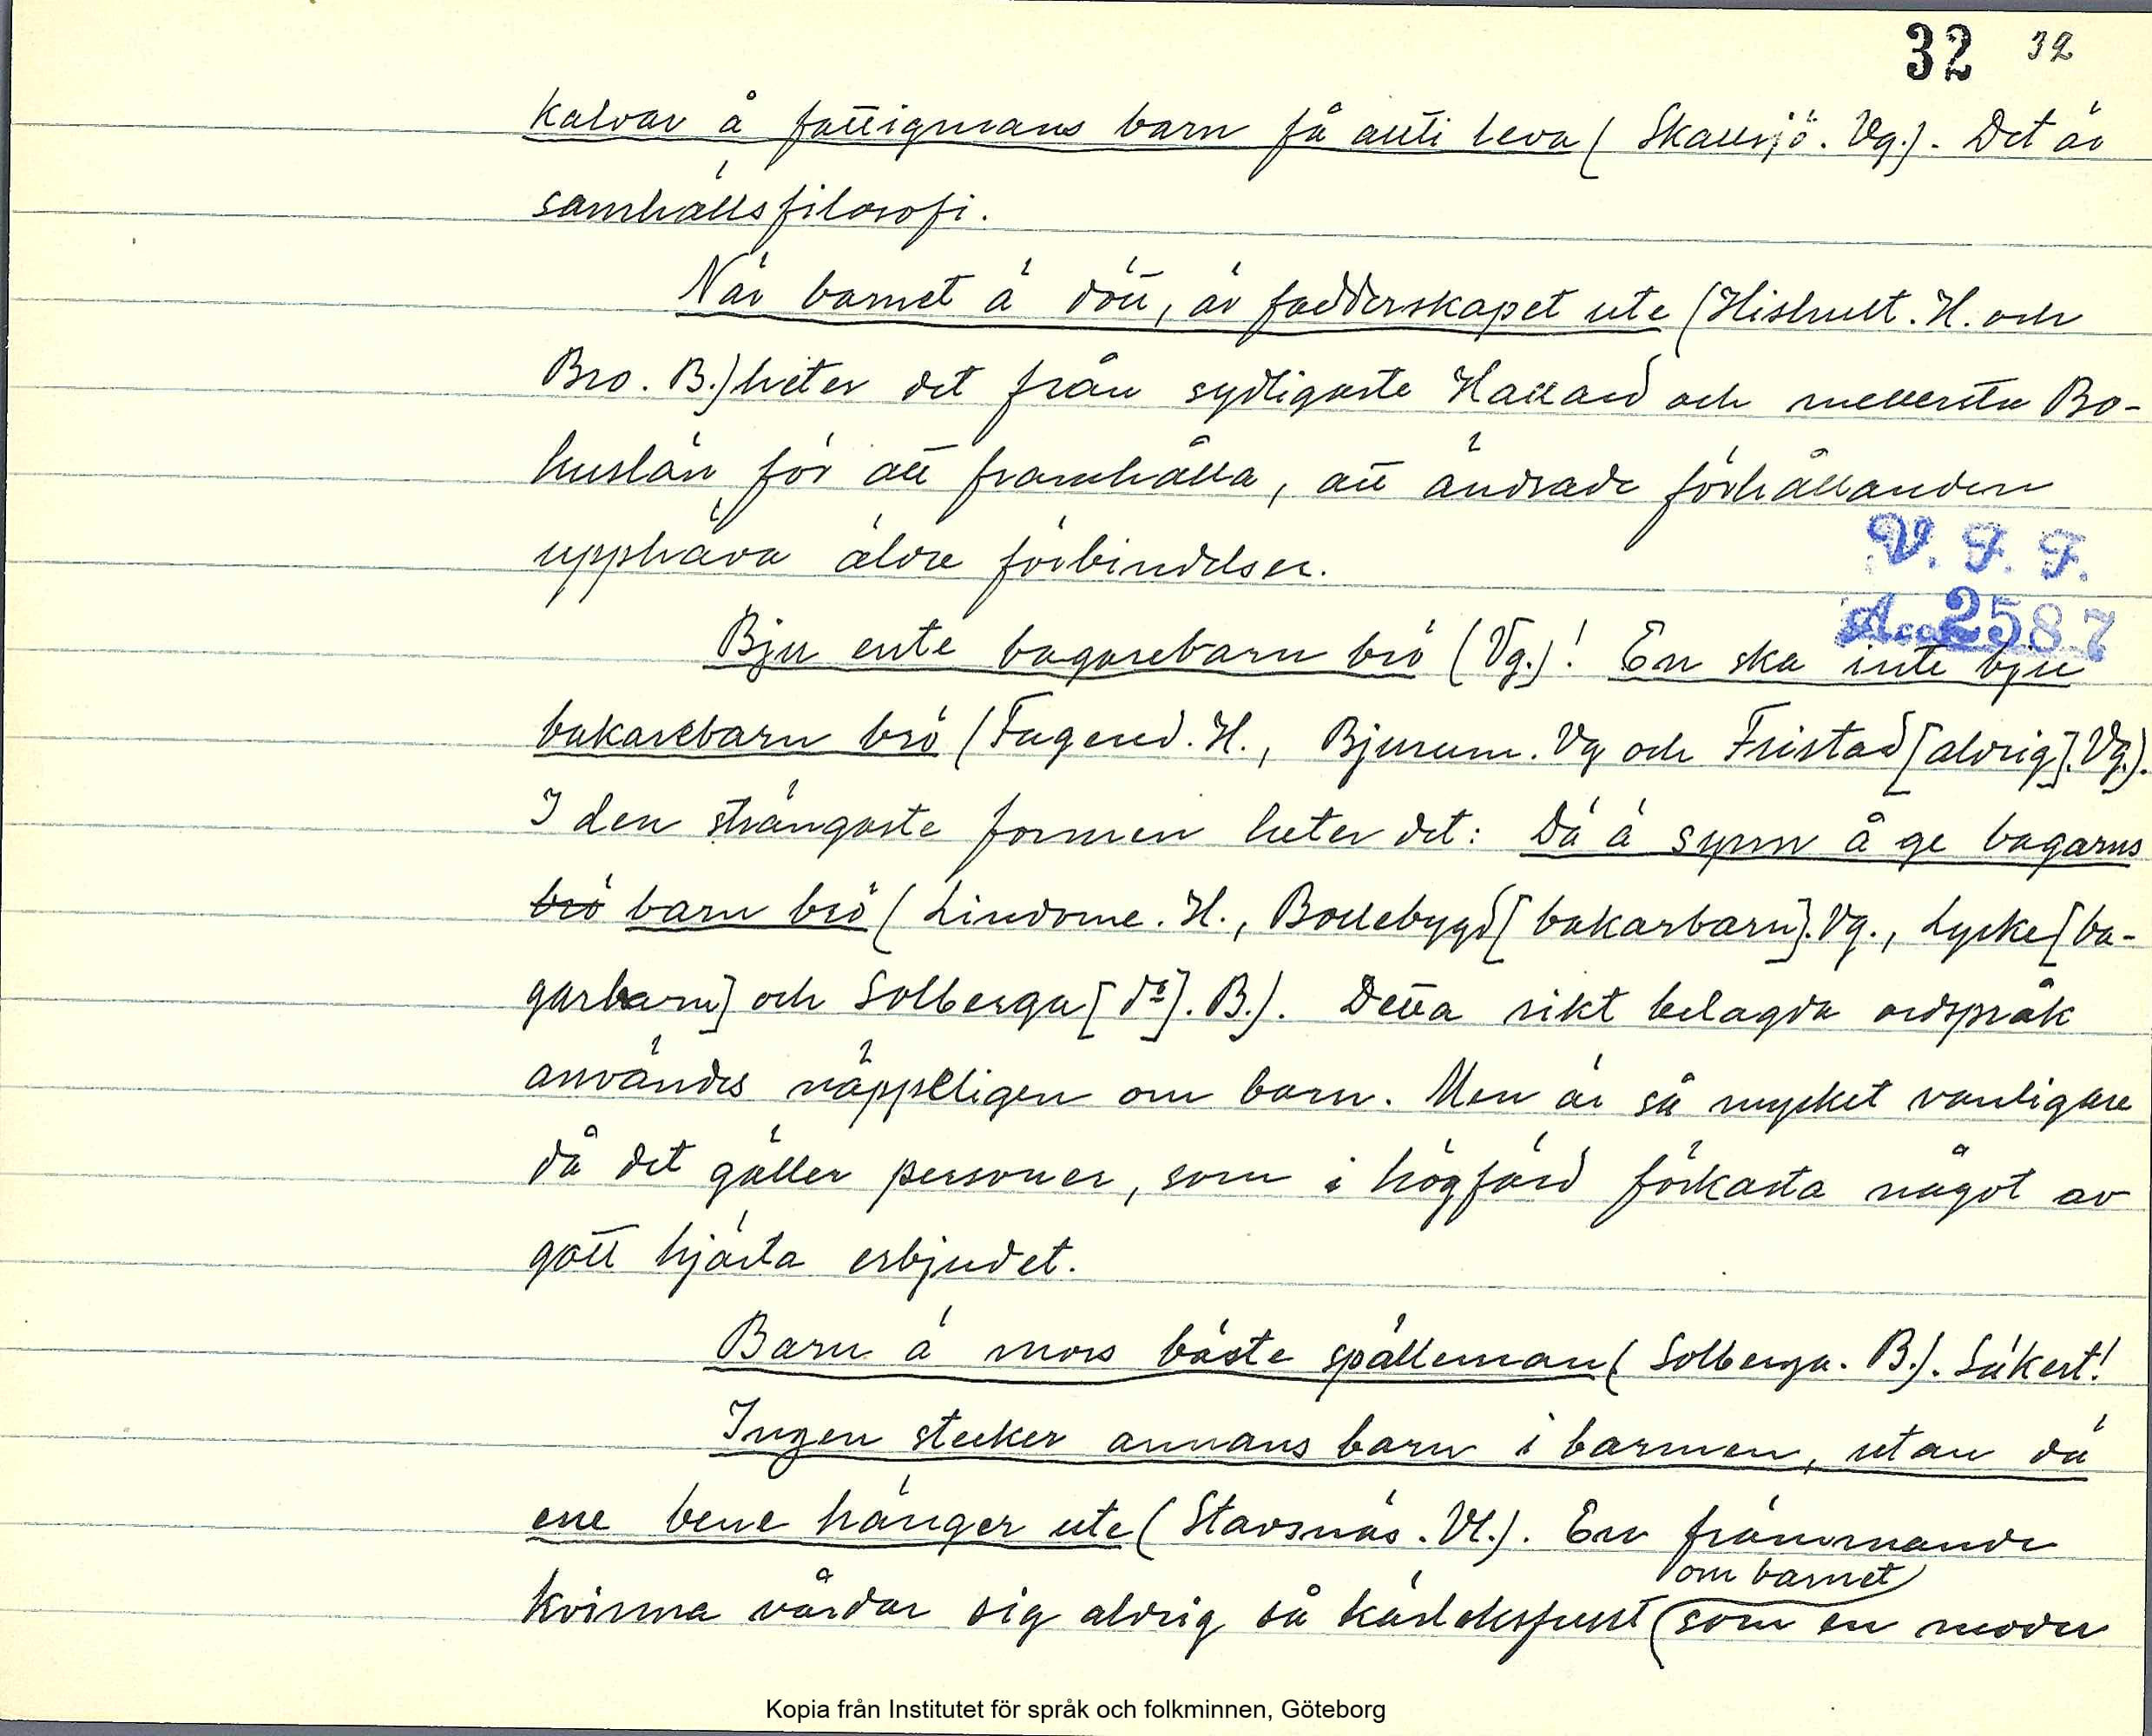 32 32
Kalvar å fattigmans barn få alti leva (Skallsjö. Vg.). Det är
samhällsfilosofi.
När barnet ä dött, är fadderskapet ute (Hishult. H. och
Bro. B.) heter det från sydligaste Halland och mellersta Bo-
huslän för att framhålla, att ändrade förhållanden
upphäva äldre förbindelser.
V. F. F.
Acc 2587
Bju ente bagarebarn brö (Vg.)! En ska inte bju
bakarebarn brö (Fagered. H., Bjurum. Vg och Fristad [aldrig]. Vg.).
I den strängaste formen heter det: Dä ä synn å ge bagarns
brö barn brö (Lindome. H., Bollebygd [bakarbarn]. Vg., Lycke [ba-
garbarn] och Solberga [do]. B.). Detta rikt belagda ordspråk
användes näppeligen om barn. Men är så mycket vanligare
då det gäller personer, som i högfärd förkasta något av
gott hjärta erbjudet.
Barn ä mors bäste spälleman (Solberga. B.). Säkert!
Ingen stecker annans barn i barmen, utan dä
ene bene hänger ute (Stavnäs. Vl.). En främmande
om barnet
kvinna vårdar sig aldrig så kärleksfullt som en moder
Kopia från Institutet för språk och folkminnen, Göteborg